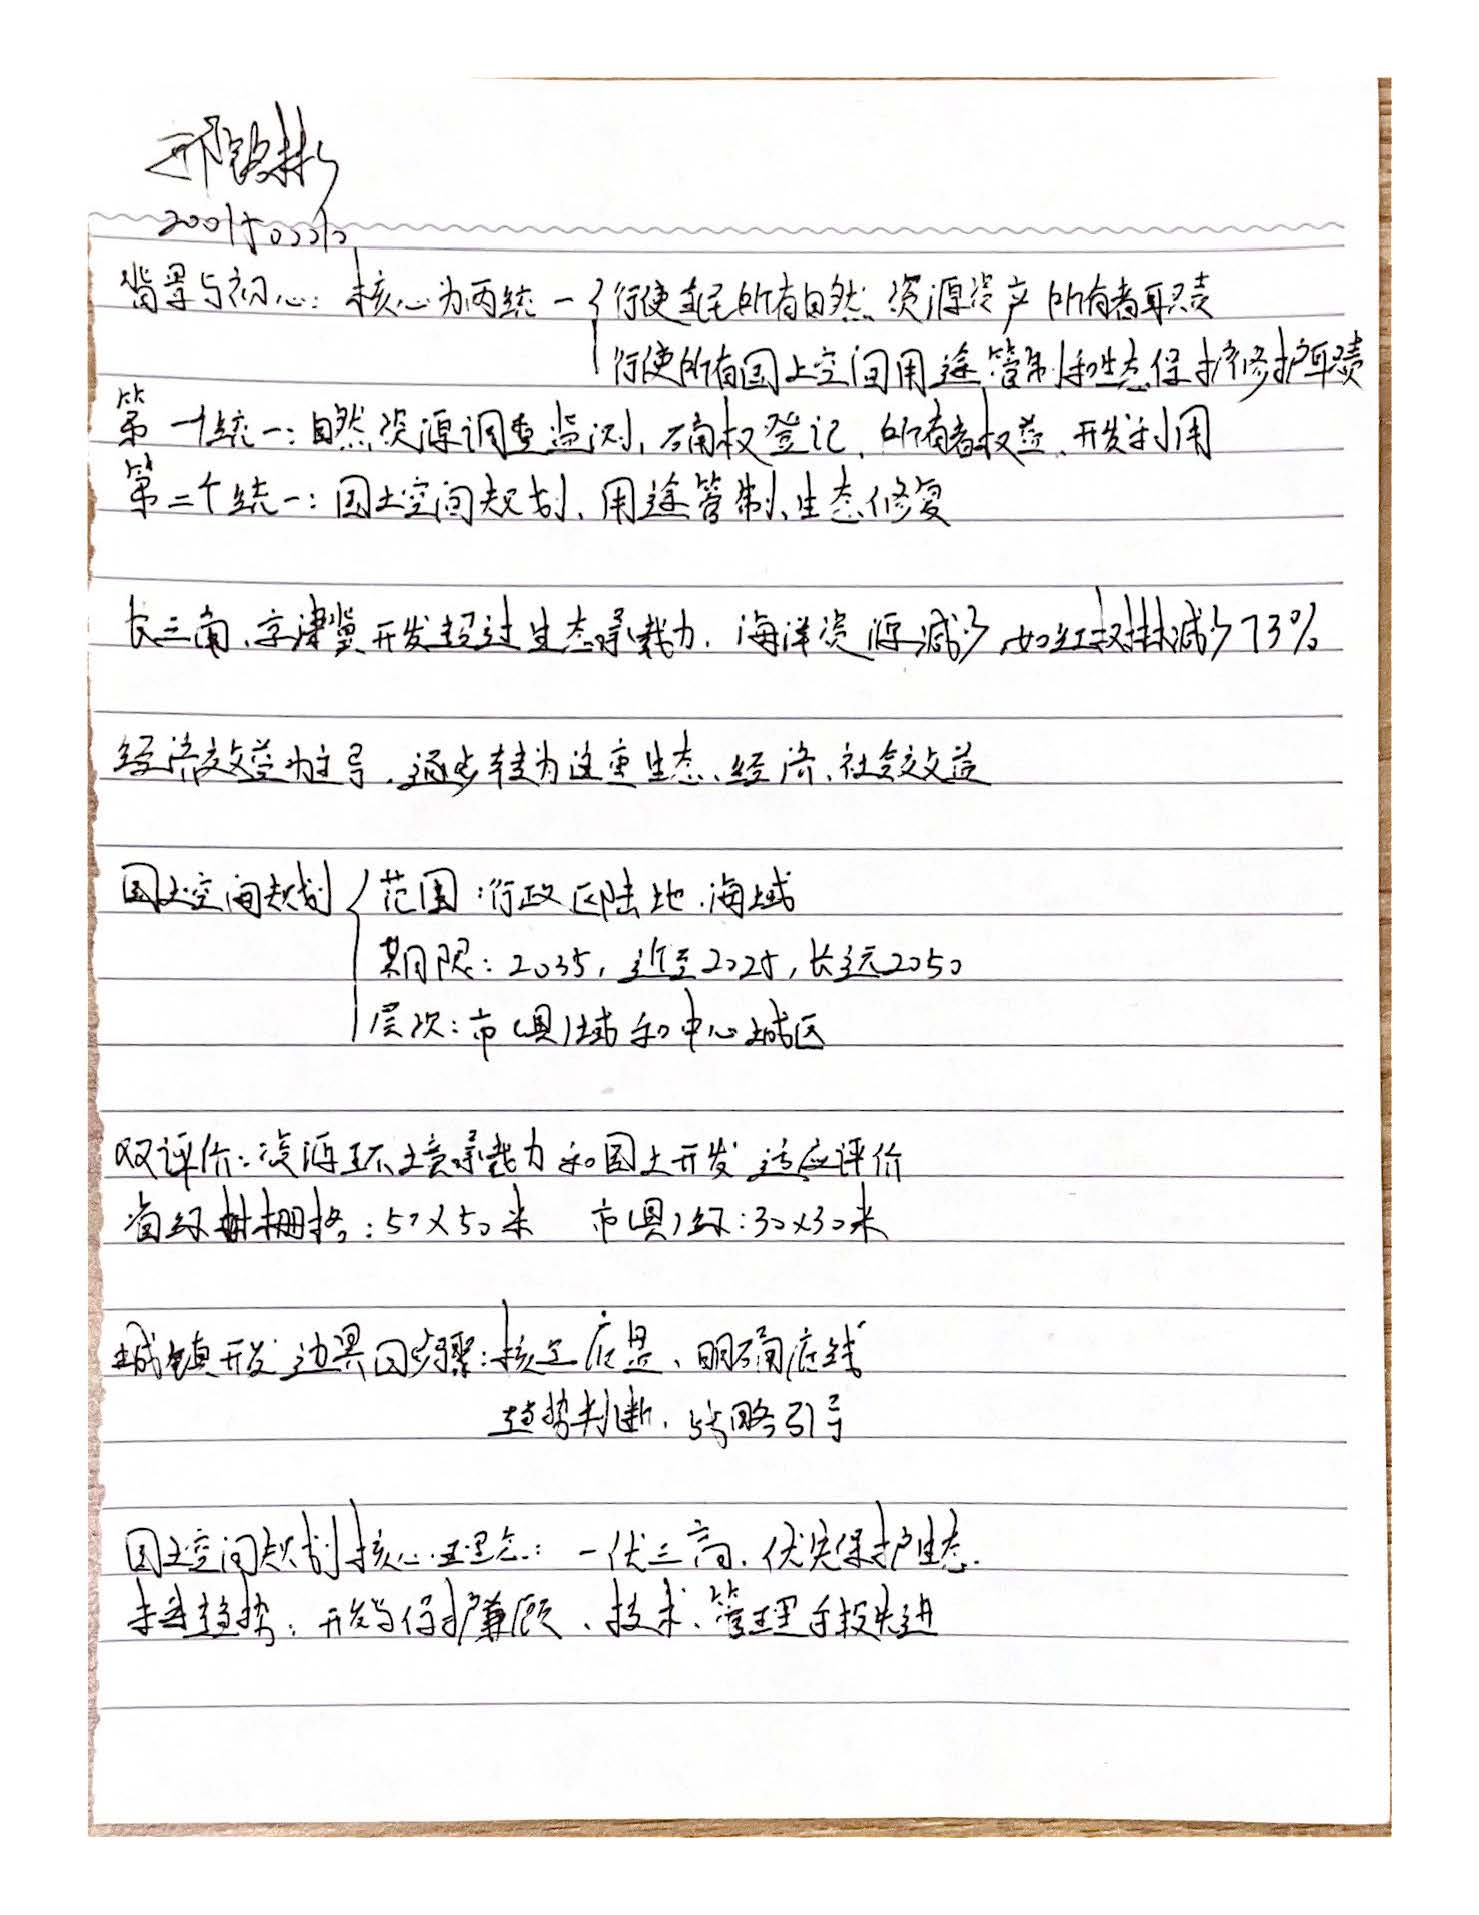 背景与初心：核心为两统一{行使全民所有自然资源资产所有者职责
行使所有国土空间用途管制和生态保护修护职责
第一个统一：自然资源调查监测、确权登记、所有者权益、开发利用
第二个统一：国土空间规划、用途管制、生态修复
长三角、京津冀开发超过生态承载力，海洋资源减少，如红树林减少73%
经济效益为主导，逐步转为注重生态、经济、社会效益
国土空间规划{范围：行政区陆地、海域
期限：2035，近至2025，长远2050
层次：市(县)域和中心城区
双评价：资源环境承载力和国土开发适应评价
省级栅格：50×50米 市(县)级：30×30米
城镇开发边界四步骤：核定底盘、明确底线
趋势判断、战略引导
国土空间规划核心理念：一优三高，优先保护生态.
未来趋势：开发与保护兼顾、技术、管理手段先进